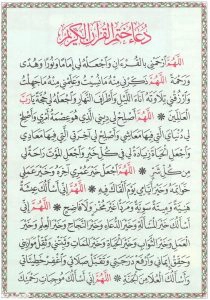 دُعَاءُ خَتْمِ الْقُرْآنِ الْكَرِيمِ
اللَّهُمَّ ارْحَمْنِي بِالْقُرْءَانِ وَاجْعَلْهُ لِي إِمَامًا وَنُورًا وَهُدًى
وَرَحْمَةً اللَّهُمَّ ذَكِّرْنِي مِنْهُ مَا نَسِيتُ وَعَلِّمْنِي مِنْهُ مَا جَهِلْتُ
وَارْزُقْنِي تِلَاوَتَهُ آنَاءَ اللَّيْلِ وَأَطْرَافَ النَّهَارِ وَاجْعَلْهُ لِي حُجَّةً يَا رَبَّ
الْعَالَمِينَ اللَّهُمَّ أَصْلِحْ لِي دِينِي الَّذِي هُوَ عِصْمَةُ أَمْرِي وَأَصْلِحْ
لِي دُنْيَايَ الَّتِي فِيهَا مَعَاشِي وَأَصْلِحْ لِي آخِرَتِي الَّتِي فِيهَا مَعَادِي
وَاجْعَلِ الْحَيَاةَ زِيَادَةً لِي فِي كُلِّ خَيْرٍ وَاجْعَلِ الْمَوْتَ رَاحَةً لِي
مِنْ كُلِّ شَرٍّ اللَّهُمَّ اجْعَلْ خَيْرَ عُمْرِي آخِرَهُ وَخَيْرَ عَمَلِي
خَوَاتِمَهُ وَخَيْرَ أَيَّامِي يَوْمَ أَلْقَاكَ فِيهِ اللَّهُمَّ إِنِّي أَسْأَلُكَ عِيشَةً
هَنِيَّةً وَمِيتَةً سَوِيَّةً وَمَرَدًّا غَيْرَ مُخْزٍ وَلَا فَاضِحٍ اللَّهُمَّ إِنِّي
أَسْأَلُكَ خَيْرَ الْمَسْأَلَةِ وَخَيْرَ الدُّعَاءِ وَخَيْرَ النَّجَاحِ وَخَيْرَ الْعِلْمِ وَخَيْرَ
الْعَمَلِ وَخَيْرَ الثَّوَابِ وَخَيْرَ الْحَيَاةِ وَخَيْرَ الْمَمَاتِ وَثَبِّتْنِي وَثَقِّلْ مَوَازِينِي
وَحَقِّقْ إِيمَانِي وَارْفَعْ دَرَجَتِي وَتَقَبَّلْ صَلَاتِي وَاغْفِرْ خَطِيئَاتِي
وَأَسْأَلُكَ الْعُلَا مِنَ الْجَنَّةِ اللَّهُمَّ إِنِّي أَسْأَلُكَ مُوجِبَاتِ رَحْمَتِكَ